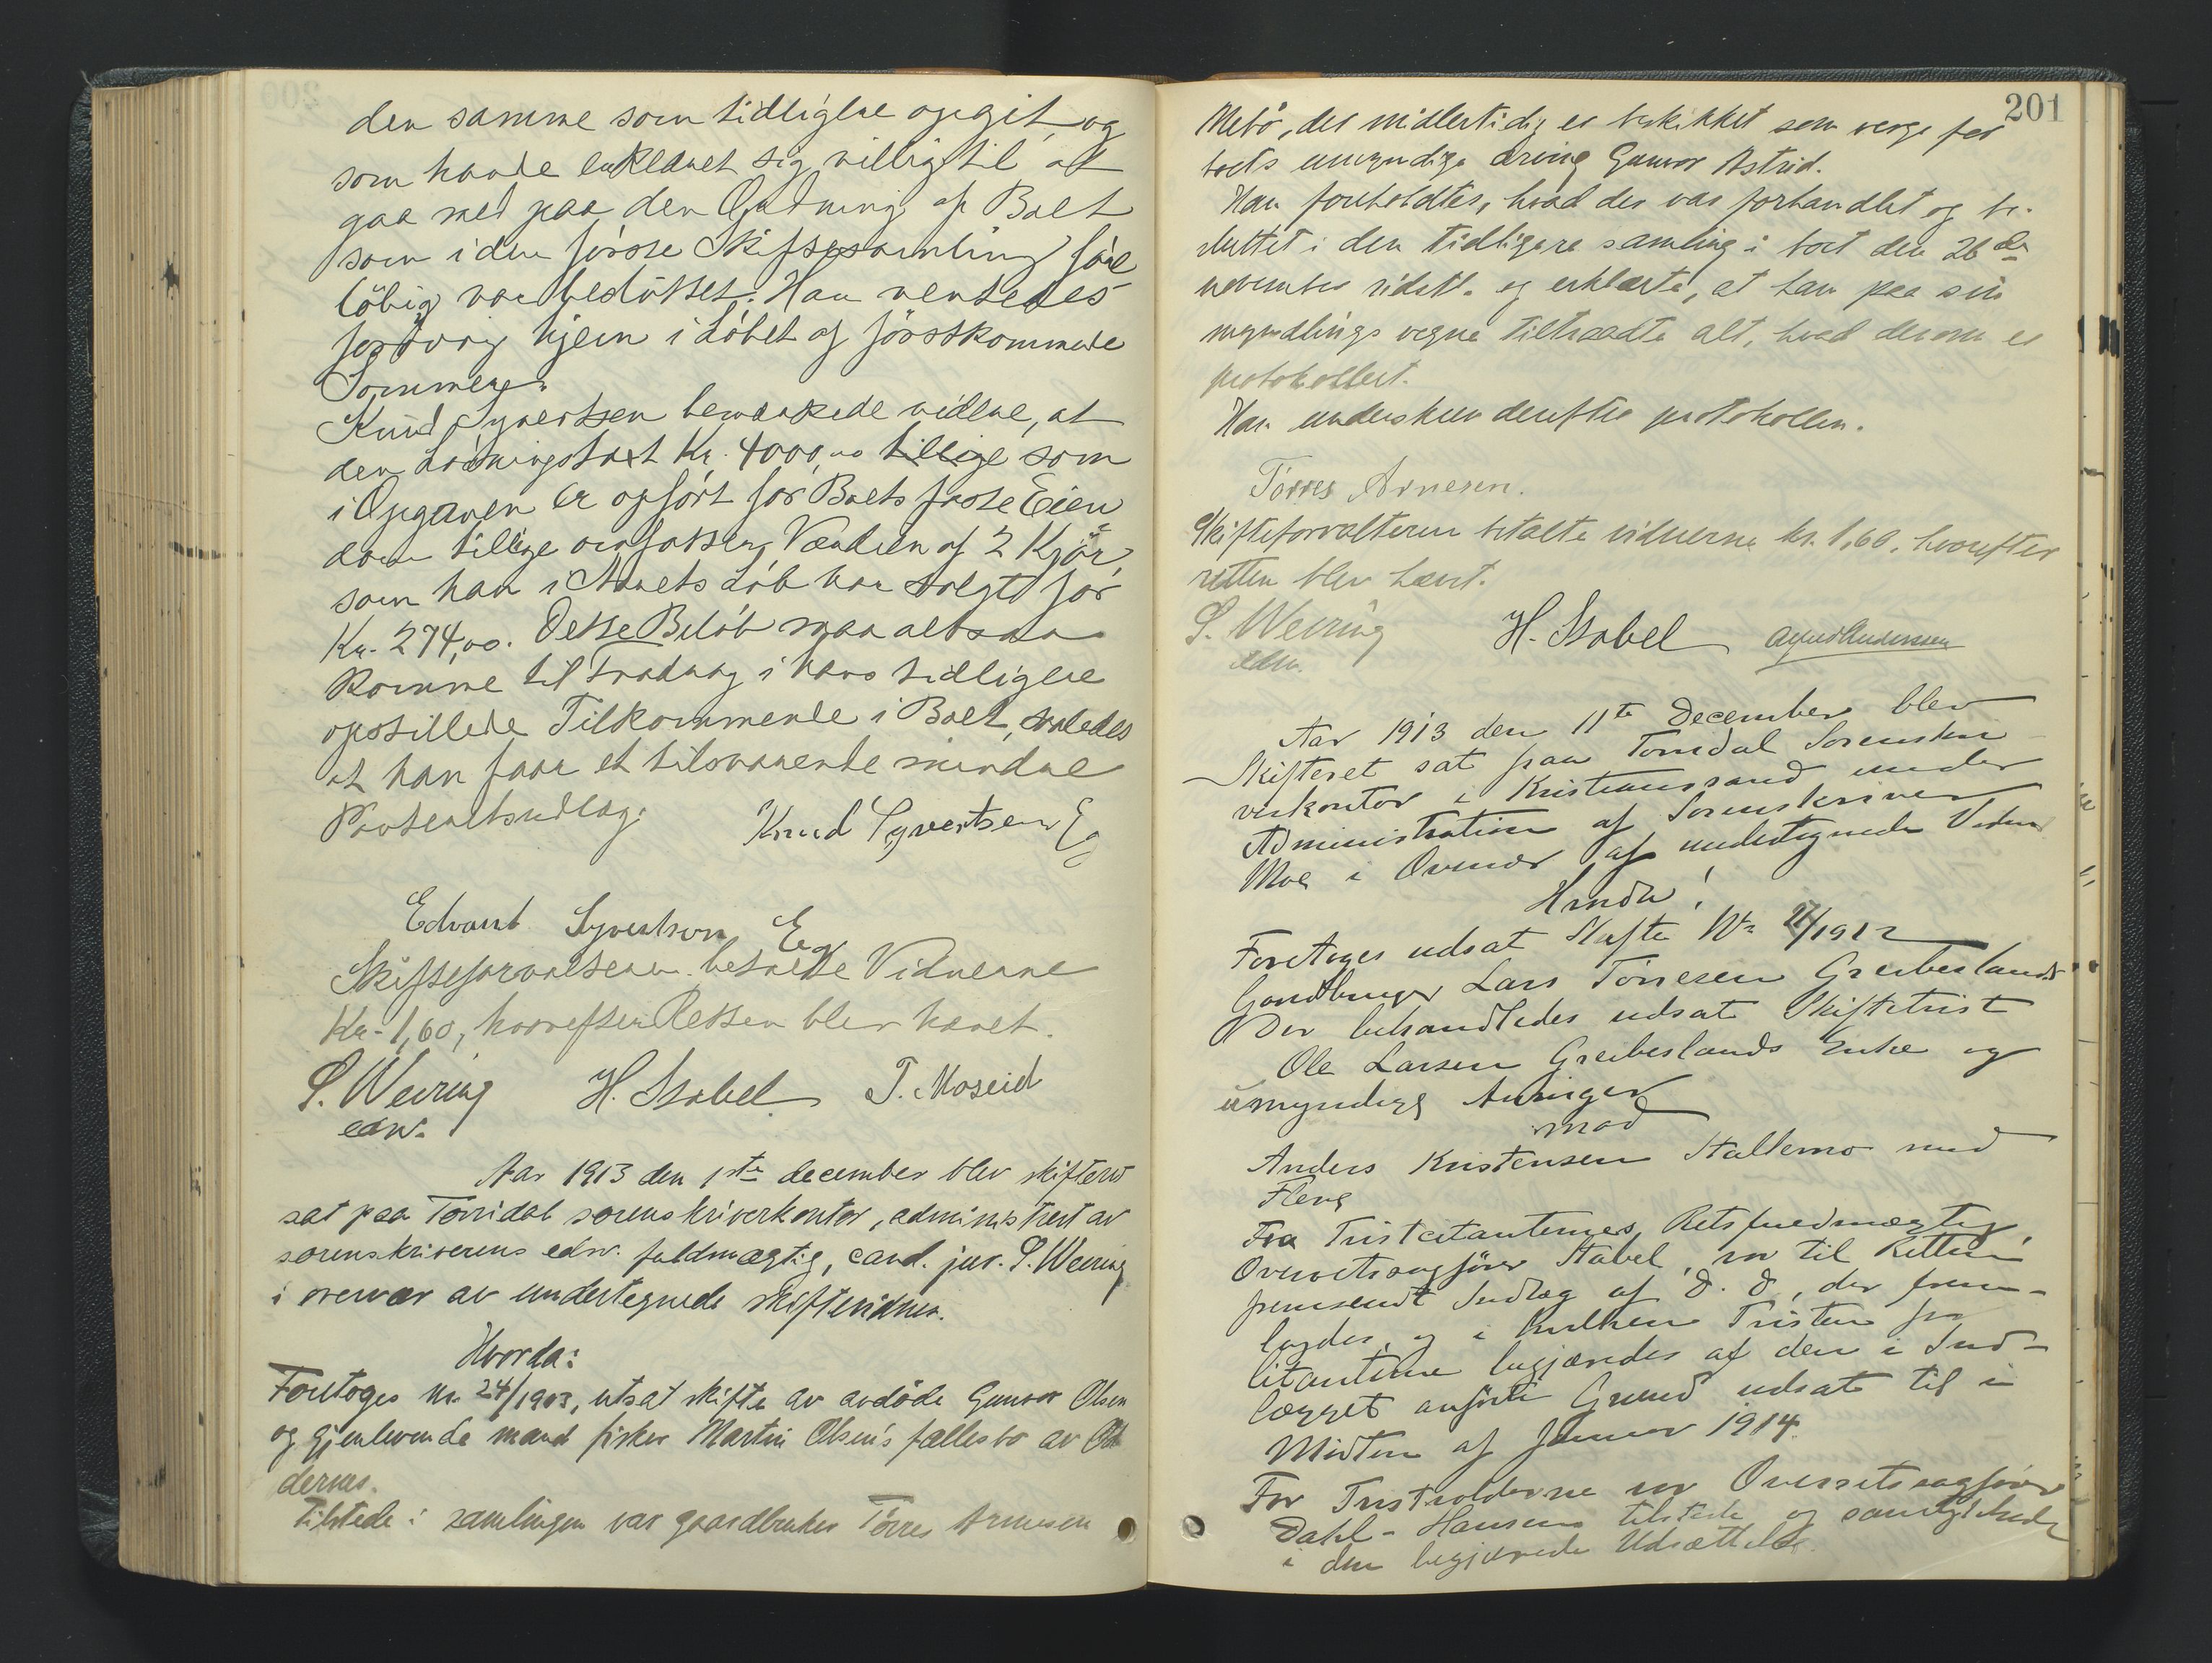 den samme som tidligere opgit, og
som havde erklæret sig villig til at
gaa med paa den Ordning af Boet
som i den første Skiftesamling fore
løbig var besluttet. Han ventedes
forøvrig hjem i Løbet af førstkommende
Sommer.
Knud Syvertsen bemærkede videre, at
den Løsningstaxt Kr. 4000,00 tillige som
i Opgaven er opført for Boets faste Eien
dom tillige omfatter Værdien af 2 Kjør,
som han i Aarets Løb har solgt for
Kr. 274,00. Dette Beløb maa altsaa
komme til Fradrag i hans tidligere
opstillede Tilkommende i Boet, saaledes
at han faar et tilsvarende mindre
Portentsudlæg.
Knud Syvertsen Eg
Edvart Syvertsen Eg
Skifteforvalteren betalte Vidnerne
Kr. 1,60, hvorefter Retten blev hævet.
S. Weiring H. Stabel T. Moseid
edsv.
Aar 1913 den 1ste december blev skifteret
sat paa Torridal sorenskriverkontor, administrert av
sorenskriverens edsv. fuldmægtig, cand. jur. S. Weiring
i overvær av undertegnede skiftevidner.
Hvorda:
Foretoges Nr. 24/1913, utsat skifte av avdøde Gunvor Olsen
og gjenlevende mand fisker Martin Olsen's fællesbo av
dernes.
Tilstede i samlingen var gaardbruker Tørres Arnesen
201
Mebø, der midlertidig er beskikket som verge for
boets umyndige arving Gunvor Astrid.
Han foreholdtes, hvad der var forhandlet og be-
sluttet i den tidligere samling i boet den 26de
november sidstl. og erklærte, at han paa sin
myndlings vegne tiltraadte alt, hvad derom er
protokollert.
Han underskrev derefter protokollen.
Tørres Arnesen.
Skifteforvalteren betalte vidnerne kr. 1,60, hvorefter
retten blev hævet.
S. Weiring H. Stabel Alfred Andersen
edsv.
Aar 1913 den 11te December blev
Skifteret sat paa Torridal Sorenskri
verkontor i Kristianssand under
Administration af Sorenskriver
Moe i Overvær af undertegnede Vidner
Hvorda!
Foretoges udsat Skifte No 27/1912
Gaardbruger Lars Tørresen Greibeslands
Der behandledes udsat Skiftetvist
Ole Larsen Greibeslands Enke og
umyndige Arvinger
mod
Anders Kristensen Stallemo med
Flere
Fra Tvistcitanternes Retsfuldmægtig,
Overretssagfører Stabel, var til Retten
fremsendt Indlæg af D. D., der frem-
lagdes, og i hvilken Tvisten fra
Citanterne begjæredes af den i Ind-
lægget anførte Grund udsat til i
Midten af Januar 1914.
For Tvistvolderne var Overretssagfører
Dahl-Hansen tilstede og samtykkede
i den begjærede Udsættelse.